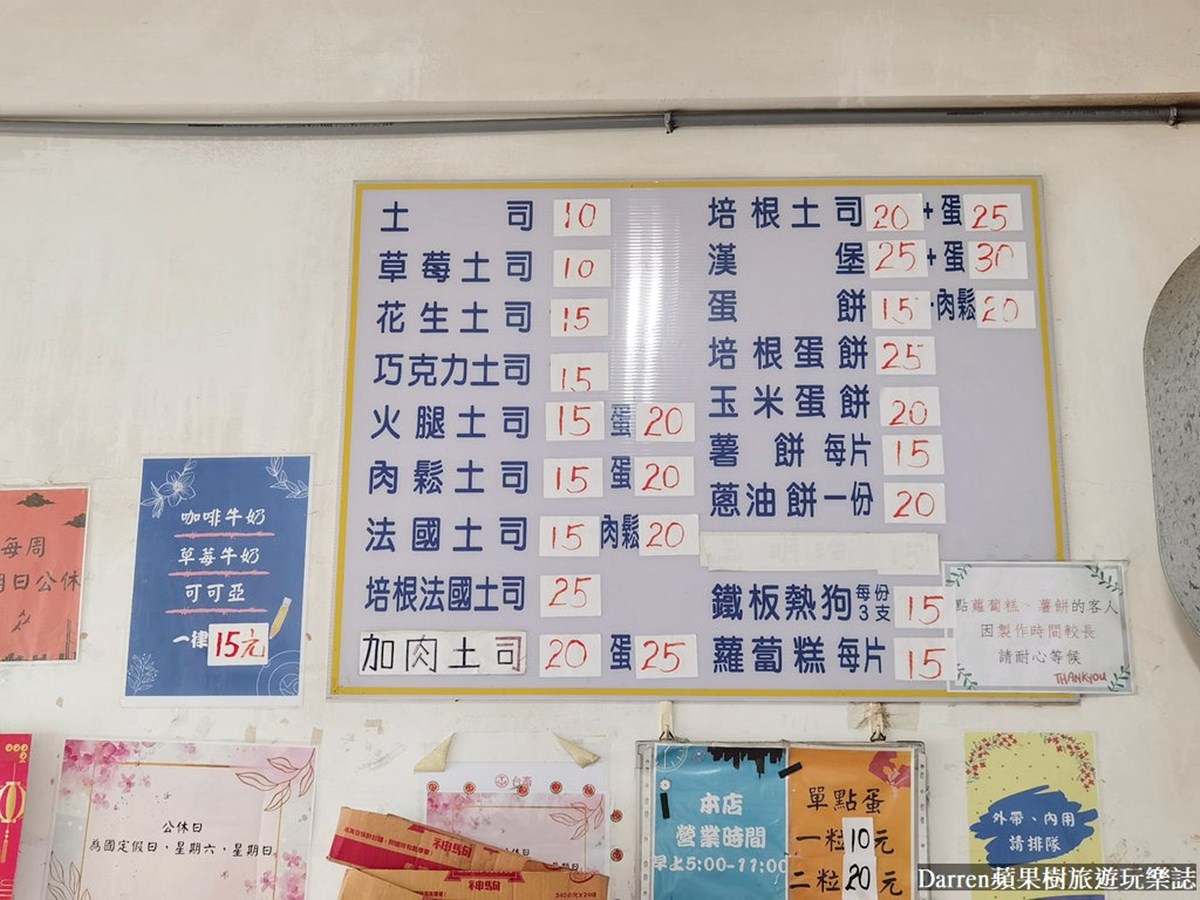 土司 10
草莓土司 10
花生土司 15
巧克力土司 15
火腿土司 15 蛋 20
肉鬆土司 15 蛋 20
法國土司 15 肉鬆 20
培根法國土司 25
加肉土司 20 蛋 25
培根土司 20 +蛋 25
漢堡 25 +蛋 30
蛋餅 15 肉鬆 20
培根蛋餅 25
玉米蛋餅 20
薯餅每片 15
蔥油餅一份 20
鐵板熱狗每份3支 15
蘿蔔糕每片 15
點蘿蔔糕、薯餅的客人
因製作時間較長
請耐心等候
THANKYOU
每周
日公休
咖啡牛奶
草莓牛奶
可可亞
一律15元
公休日
為國定假日，星期六，星期日
神駒
神駒
本店
營業時間
早上5:00-11:00
單點蛋
一粒10元
二粒20元
外帶、內用
請排隊
Darren蘋果樹旅遊玩樂誌